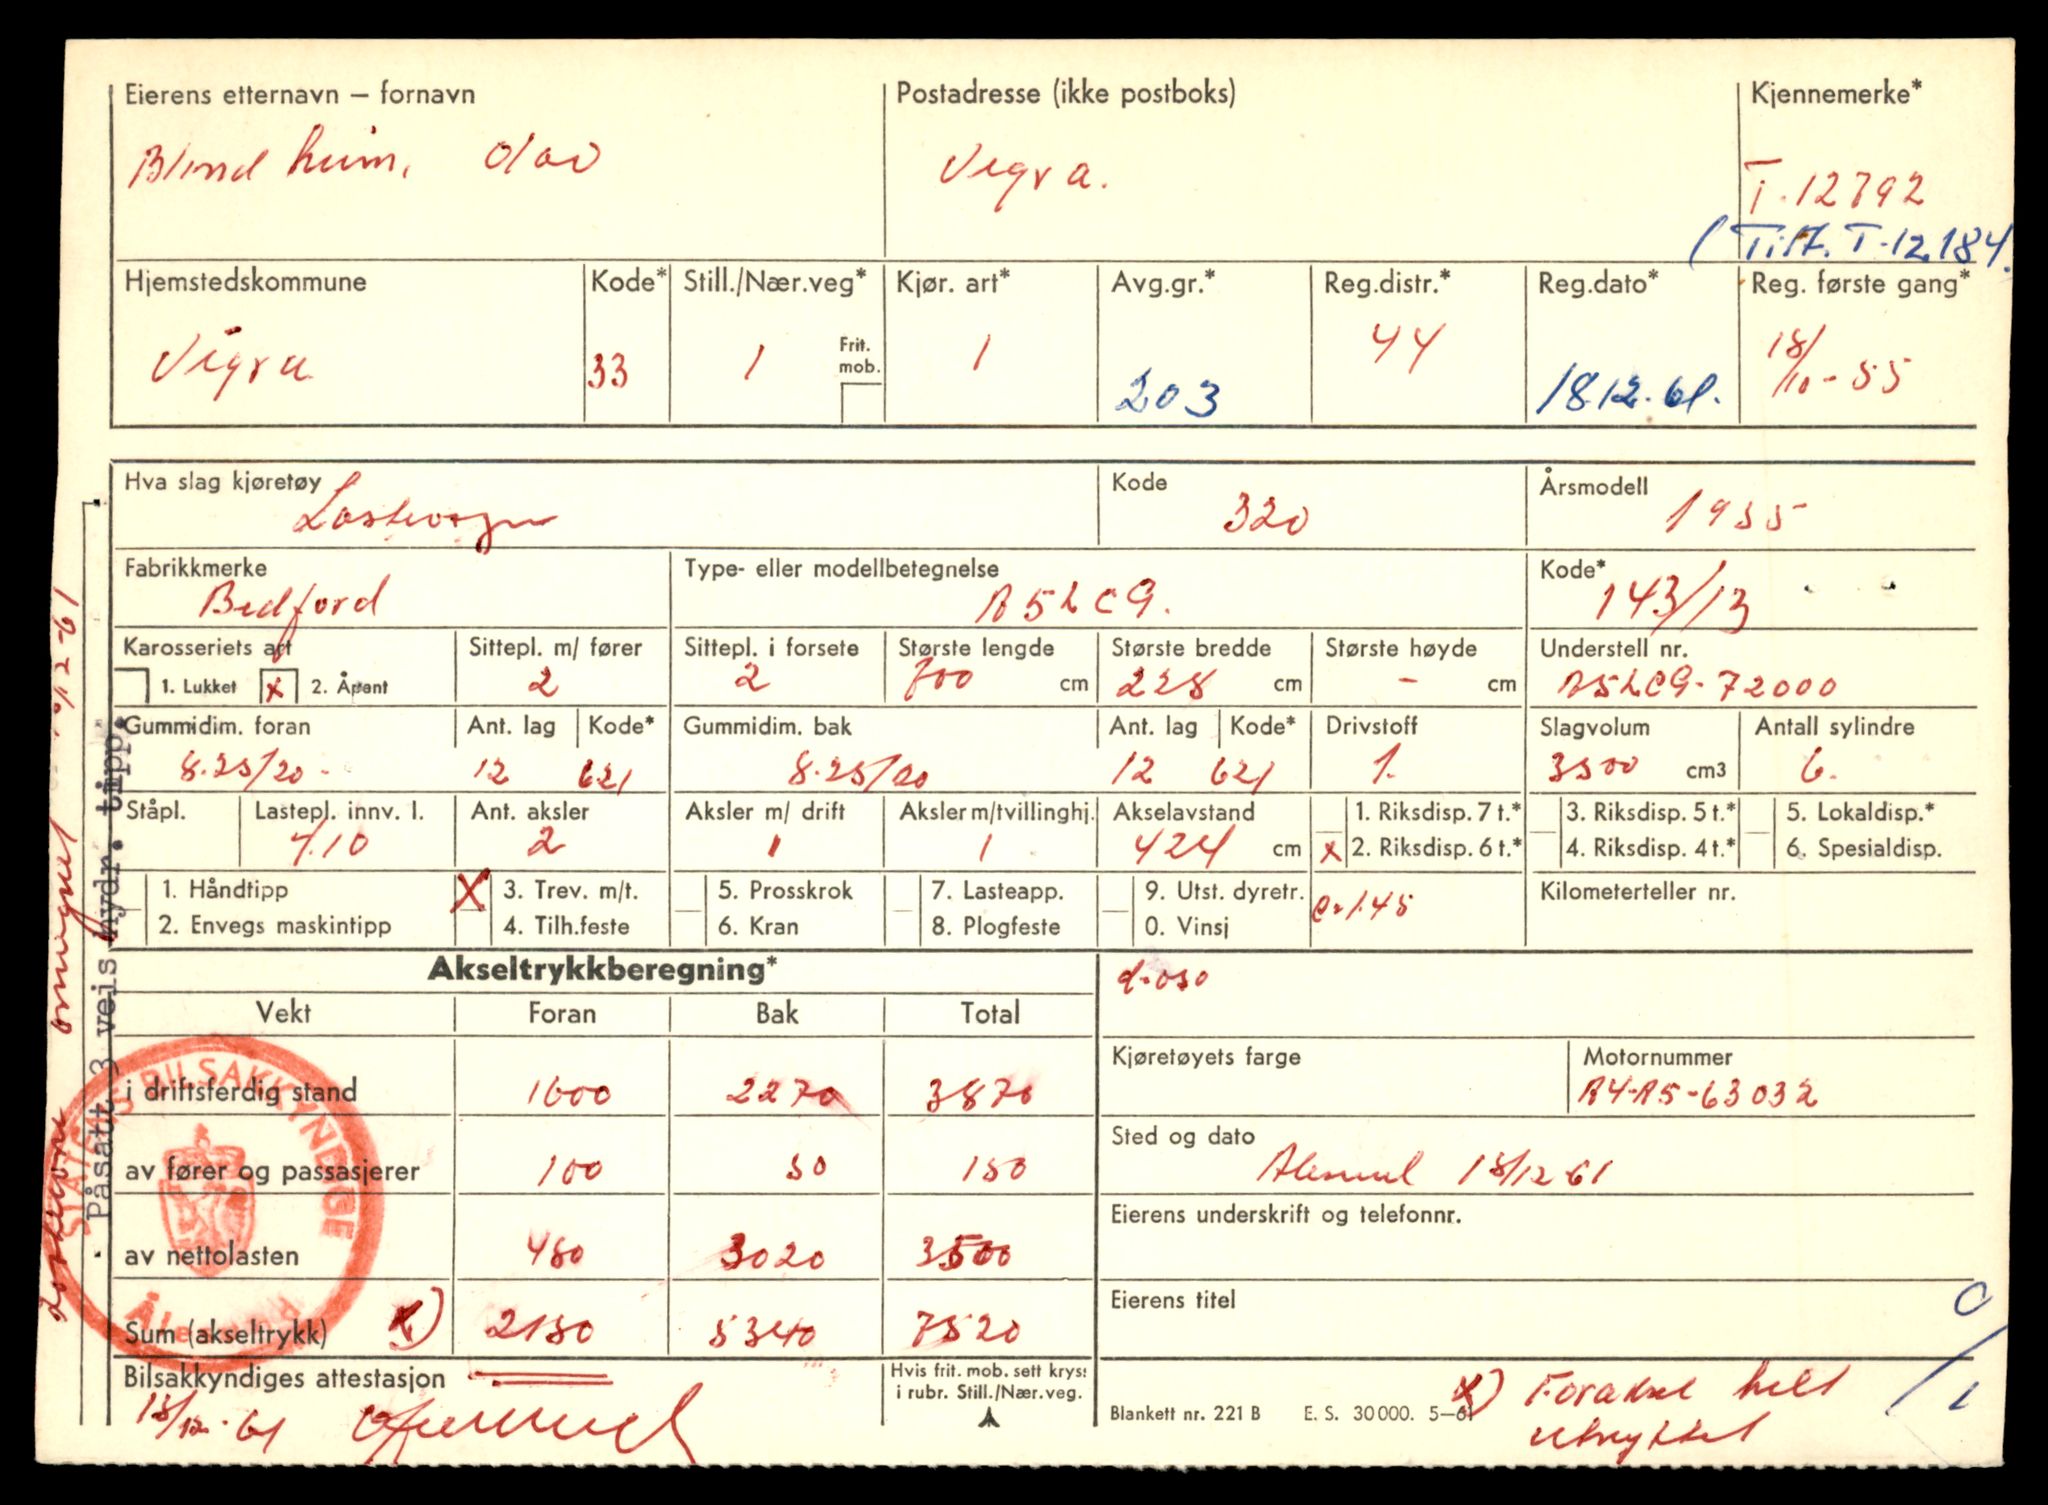 Eierens etternavn – fornavn
Postadresse (ikke postboks)
Kjennemerke*
Blindheim, Olav
Vigra.
T-12792
(Tilf. T-12184.
Hjemstedskommune
Kode*
Still./Nær.veg*
Kjør. art*
Avg.gr.*
Reg.distr.*
Reg.dato*
Reg. første gang*
Vigra
33
1
Frit. mob.
1
203
44
1812.61.
18/10-55
Hva slag kjøretøy
Kode
Årsmodell
Lastevogn
320
1955
Fabrikkmerke
Type- eller modellbetegnelse
Kode*
Bedford
A5LCG.
143/13
Karosseriets art
Sittepl. m/ fører
Sittepl. i forsete
Største lengde
Største bredde
Største høyde
Understell nr.
1. Lukket
x
2. Åpent
2
2
700 cm
228 cm
- cm
A5LCG-72000
Gummidim. foran
Ant. lag
Kode*
Gummidim. bak
Ant. lag
Kode*
Drivstoff
Slagvolum
Antall sylindre
8.25/20-
12
621
8.25/20
12
621
1.
3500 cm3
6.
Ståpl.
Lastepl. innv. l.
Ant. aksler
Aksler m/ drift
Aksler m/tvillinghj.
Akselavstand
1. Riksdisp. 7 t.*
3. Riksdisp. 5 t.*
5. Lokaldisp.*
4.10
2
1
1
424 cm
x 2. Riksdisp. 6 t.*
4. Riksdisp. 4 t.*
6. Spesialdisp.
1. Håndtipp
X 3. Trev. m/t.
5. Prosskrok
7. Lasteapp.
9. Utst. dyretr.
c=1.45
Kilometerteller nr.
2. Envegs maskintipp
4. Tilh.feste
6. Kran
8. Plogfeste
0. Vinsj
Akseltrykkberegning*
d=050
Vekt
Foran
Bak
Total
Kjøretøyets farge
Motornummer
i driftsferdig stand
1600
2270
3870
A4-A5-63032
Sted og dato
av fører og passasjerer
100
50
150
Ålesund 18/12-61
Eierens underskrift og telefonnr.
av nettolasten
480
3020
3500
Eierens titel
Sum (akseltrykk)
x)
2180
5340
7520
Bilsakkyndiges attestasjon
Hvis frit. mob. sett kryss
i rubr. Still./Nær.veg.
18/12-61
Blankett nr. 221 B
E. S. 30 000. 5–61
x) Foraksel helt
utnyttet
Påsatt 3 veis hydr. tipp.
omregnet
12-61
STATENS BILSAKKYNDIGE
Ålesund